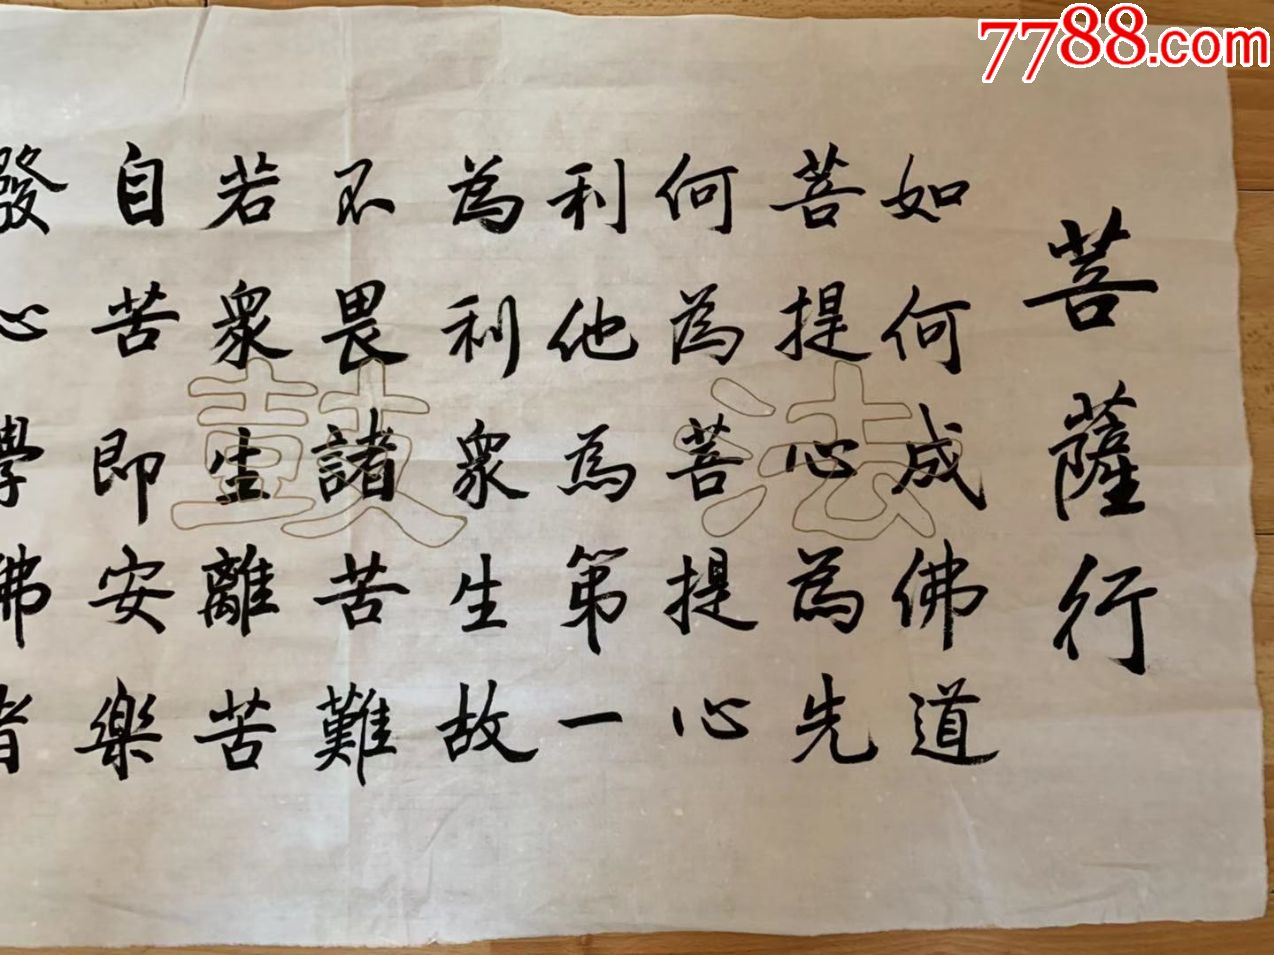 7788.com
菩薩行
如何成佛道
菩提心為先
何為菩提心
利他為第一
為利眾生故
不畏諸苦難
若眾生離苦
自苦即安樂
發心學佛者
法鼓